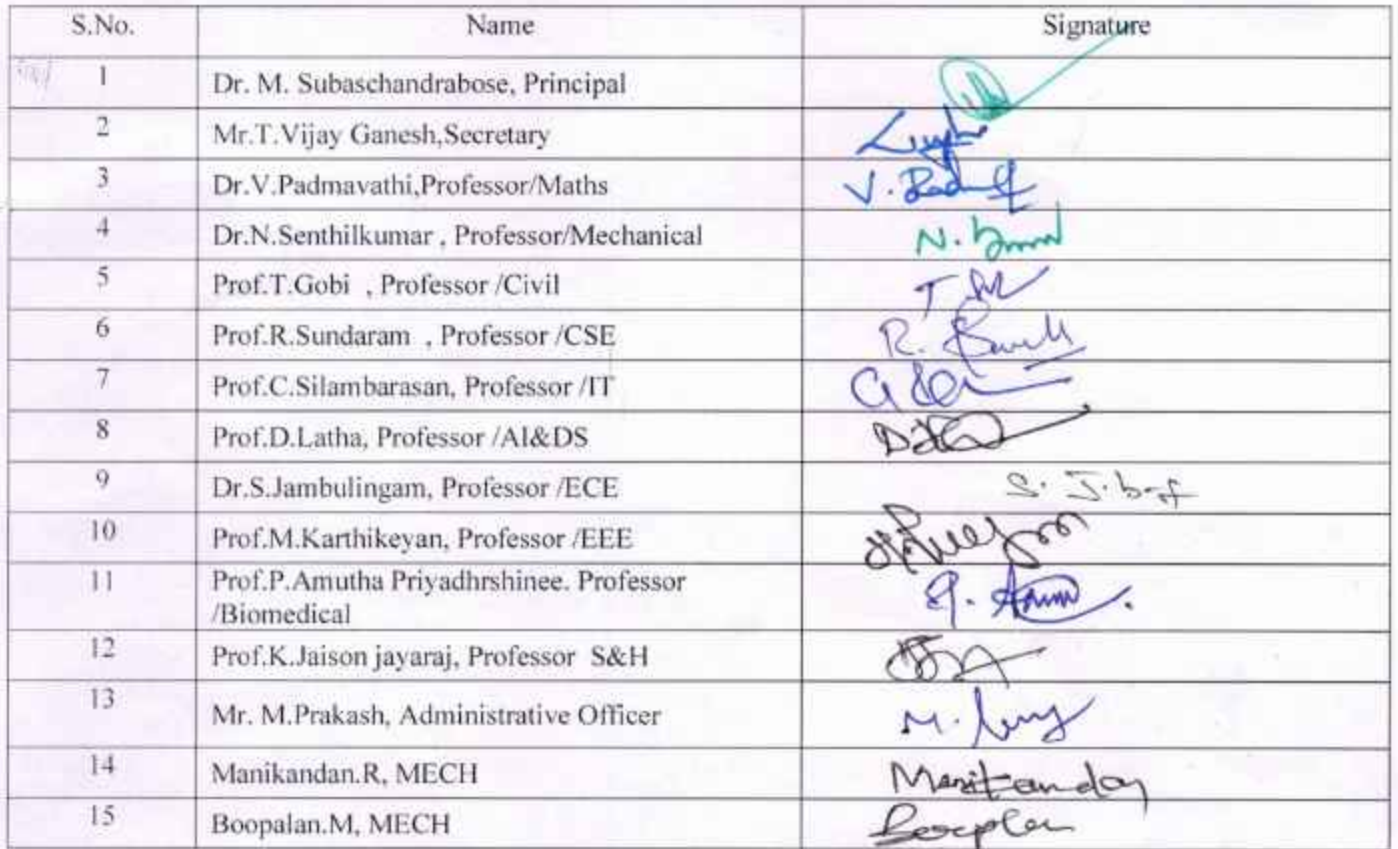 S.No. Name Signature
1 Dr. M. Subaschandrabose, Principal
2 Mr.T.Vijay Ganesh,Secretary
3 Dr.V.Padmavathi,Professor/Maths V.
4 Dr.N.Senthilkumar , Professor/Mechanical N.
5 Prof.T.Gobi , Professor /Civil T
6 Prof.R.Sundaram , Professor /CSE R.
7 Prof.C.Silambarasan, Professor /IT
8 Prof.D.Latha, Professor /AI&DS
9 Dr.S.Jambulingam, Professor /ECE S. J.
10 Prof.M.Karthikeyan, Professor /EEE
11 Prof.P.Amutha Priyadhrshinee. Professor
/Biomedical
12 Prof.K.Jaison jayaraj, Professor S&H
13 Mr. M.Prakash, Administrative Officer M.
14 Manikandan.R, MECH Manikandan
15 Boopalan.M, MECH Boopalan